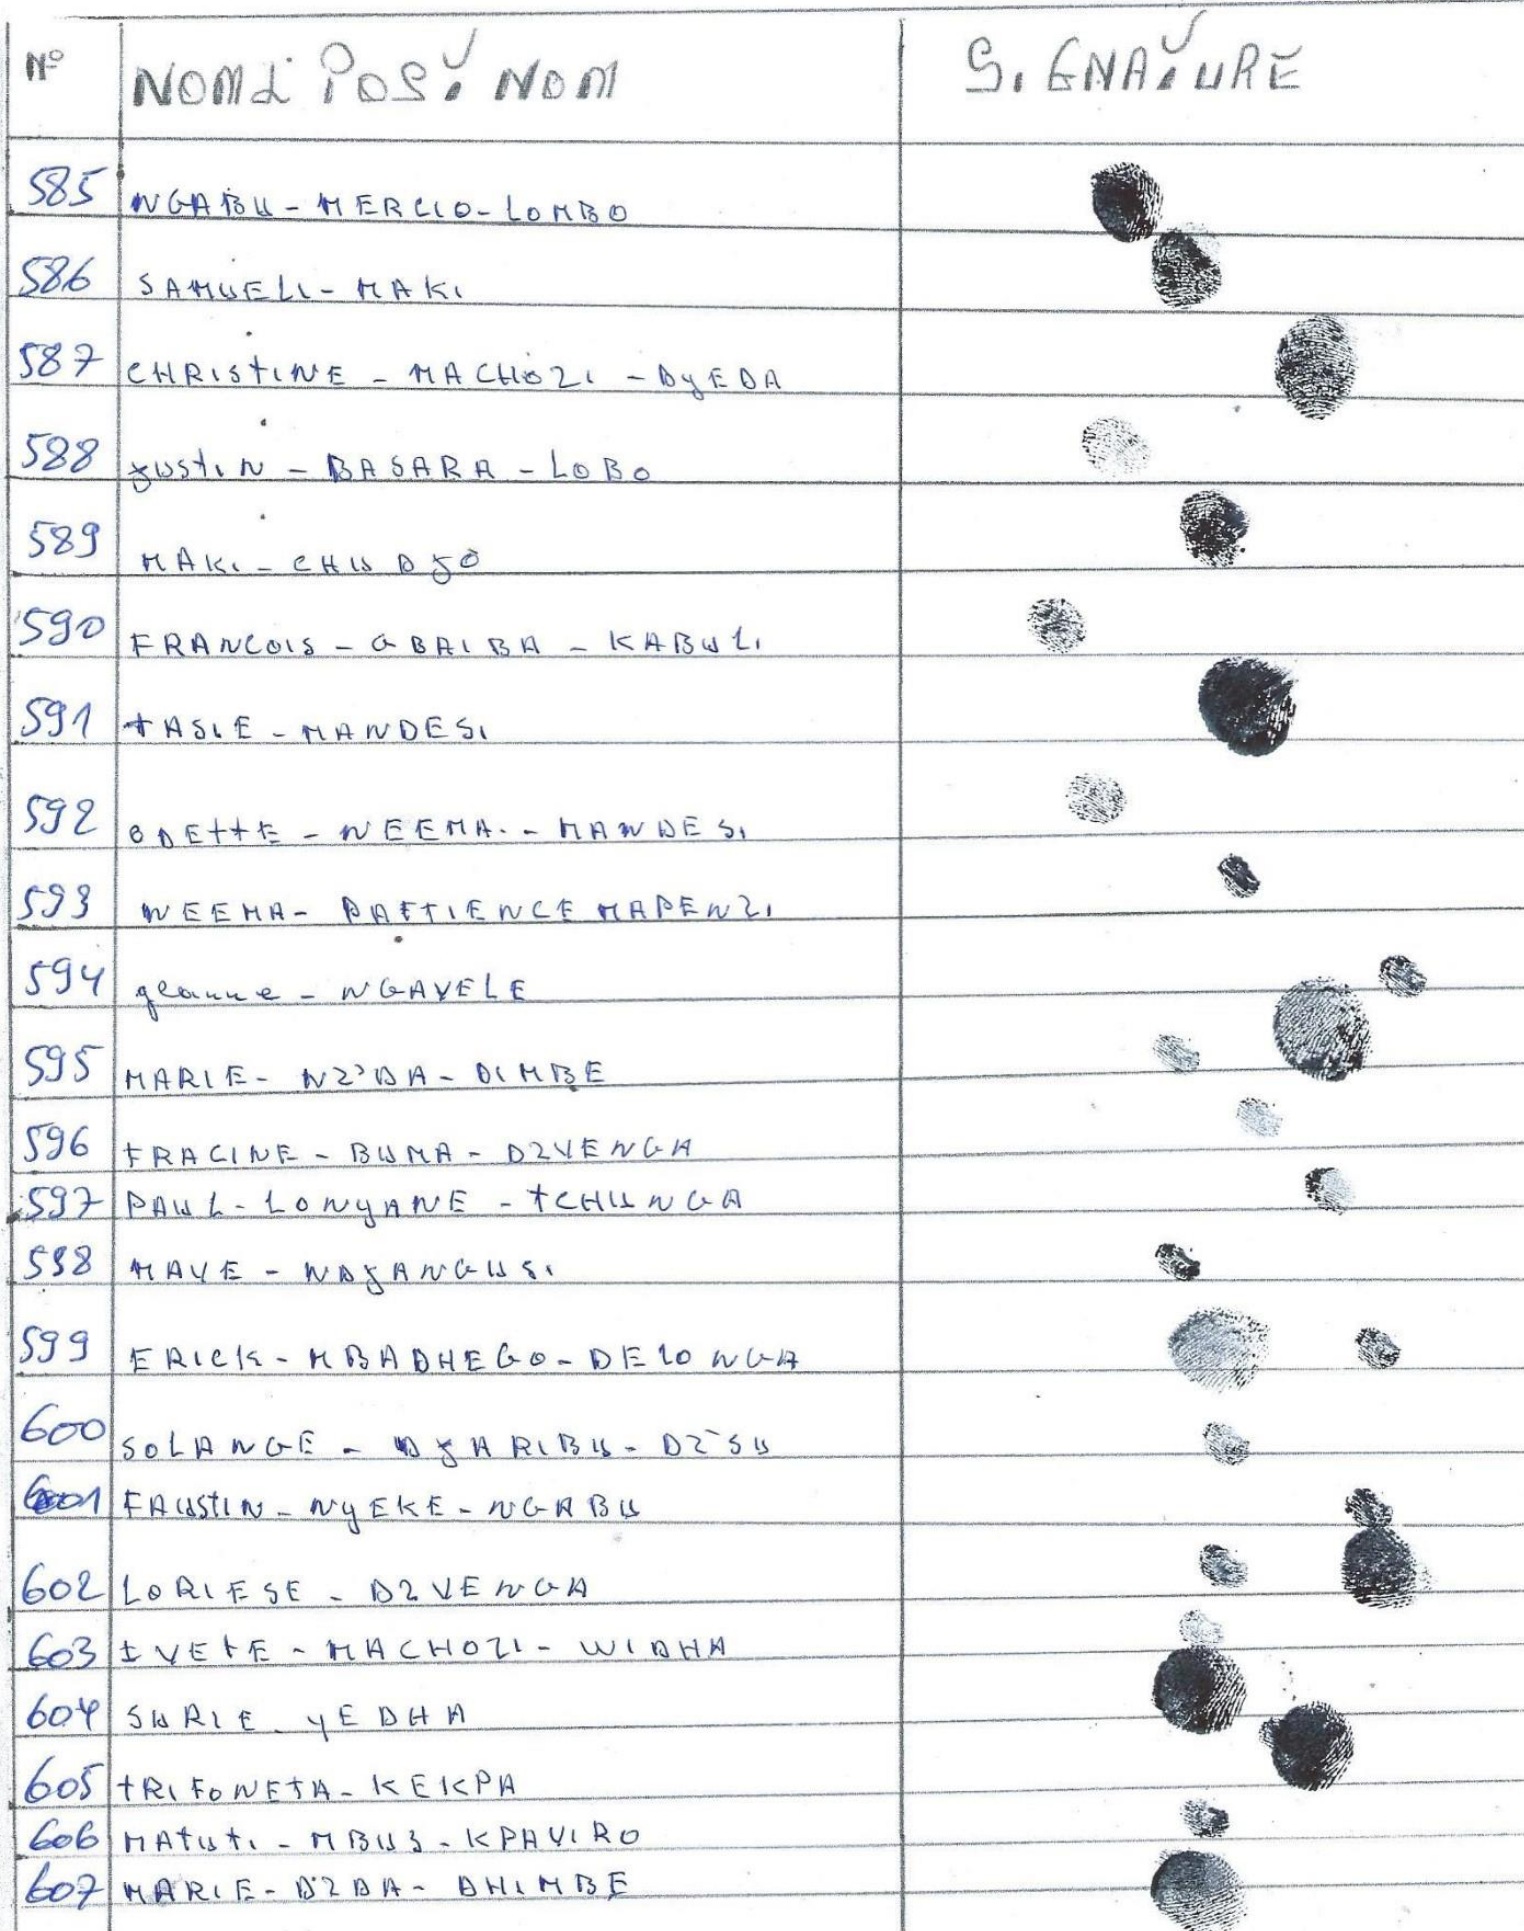 N° NOM & POST NOM SIGNATURE
585 NGABU - MERCIO - LOMBO
586 SAMUELI - MAKI
587 CHRISTINE - MACHOZI - DYEDA
588 JUSTIN - BASARA - LOBO
589 MAKI - CHUDJO
590 FRANCOIS - GBAIBA - KABULI
591 TASIE - MANDESI
592 ODETTE - NEEMA - MANDESI
593 NEEMA - PATTIENCE MAPENZI
594 geanne - NGAVELE
595 MARIE - NZ'DA - DIMBE
596 FRACINE - BUMA - DZVENGA
597 PAUL - LONYANE - TCHUNGA
598 MAVE - NDJANGUSI
599 ERICK - MBADHEGO - DELONGA
600 SOLANGE - DJARIBU - DZ'SU
601 FAUSTIN - NYEKE - NGABU
602 LORIESE - DZVENGA
603 IVETE - MACHOZI - WIDHA
604 SURIE - YEDHA
605 TRIFONETA - KEKPA
606 MATUTI - KPAVIRO
607 MARIE - D'ZDA - DHIMBE